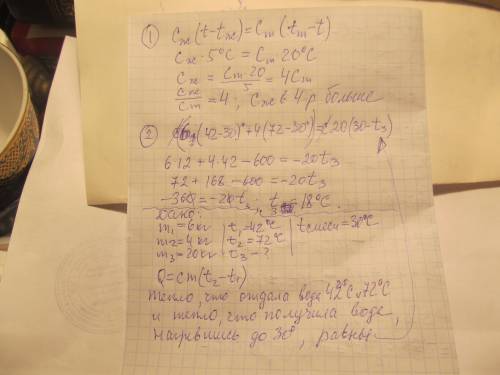 ① Cж(t-tж)=Cт(tт-t)
Cж·5°C = Cт·20°C
Cж = Cт·20/5 = 4Cт
Cж/Cт = 4; Cж в 4 р больше
② (42-30)°+4(72-30°)=20(30-t₃)
6·12+4·42-600=-20t₃
72+168-600=-20t₃
-360=-20t₃; t₃=18°C.
Дано:
m₁=6кг t₁=42°C tсмеси=30°C
m₂=4кг t₂=72°C
m₃=20кг t₃-?
Q=cm(t₂-t₁)
Тепло, что отдала вода 42°C и 72°C
и тепло, что получила вода,
нагревшись до 30°, равны